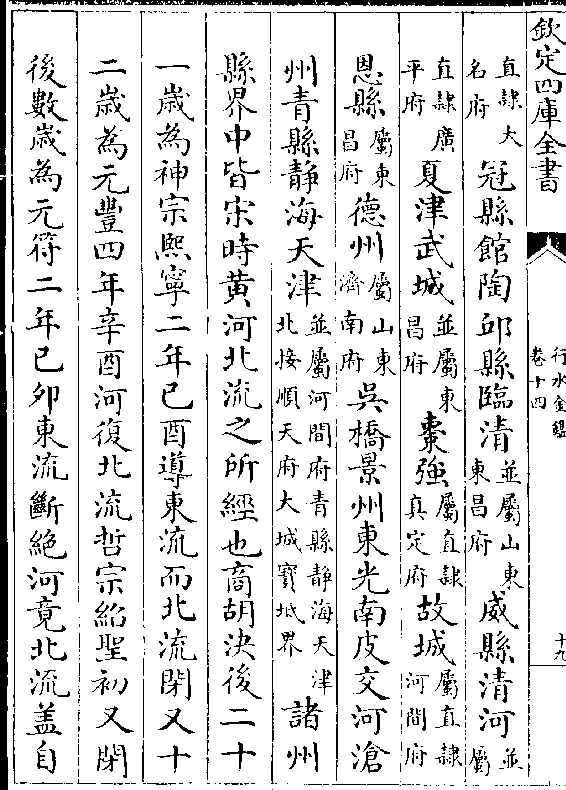 欽定四庫全書
行水金鑑
卷十四
十九
直隸大名府冠縣館陶邱縣臨清並屬山東東昌府威縣清河並屬
直隸廣平府夏津武城並屬東昌府棗強屬直隸真定府故城屬直隸河間府
恩縣屬東昌府德州屬山東濟南府吳橋景州東光南皮交河滄
州青縣靜海天津並屬河間府青縣靜海天津北接順天府大城寶坻界諸州
縣界中皆宋時黄河北流之所經也商胡決後二十
一歲為神宗熙寧二年已酉導東流而北流閉又十
二歲為元豐四年辛酉河復北流哲宗紹聖初又閉
後數歲為元符二年已卯東流斷絶河竟北流盖自